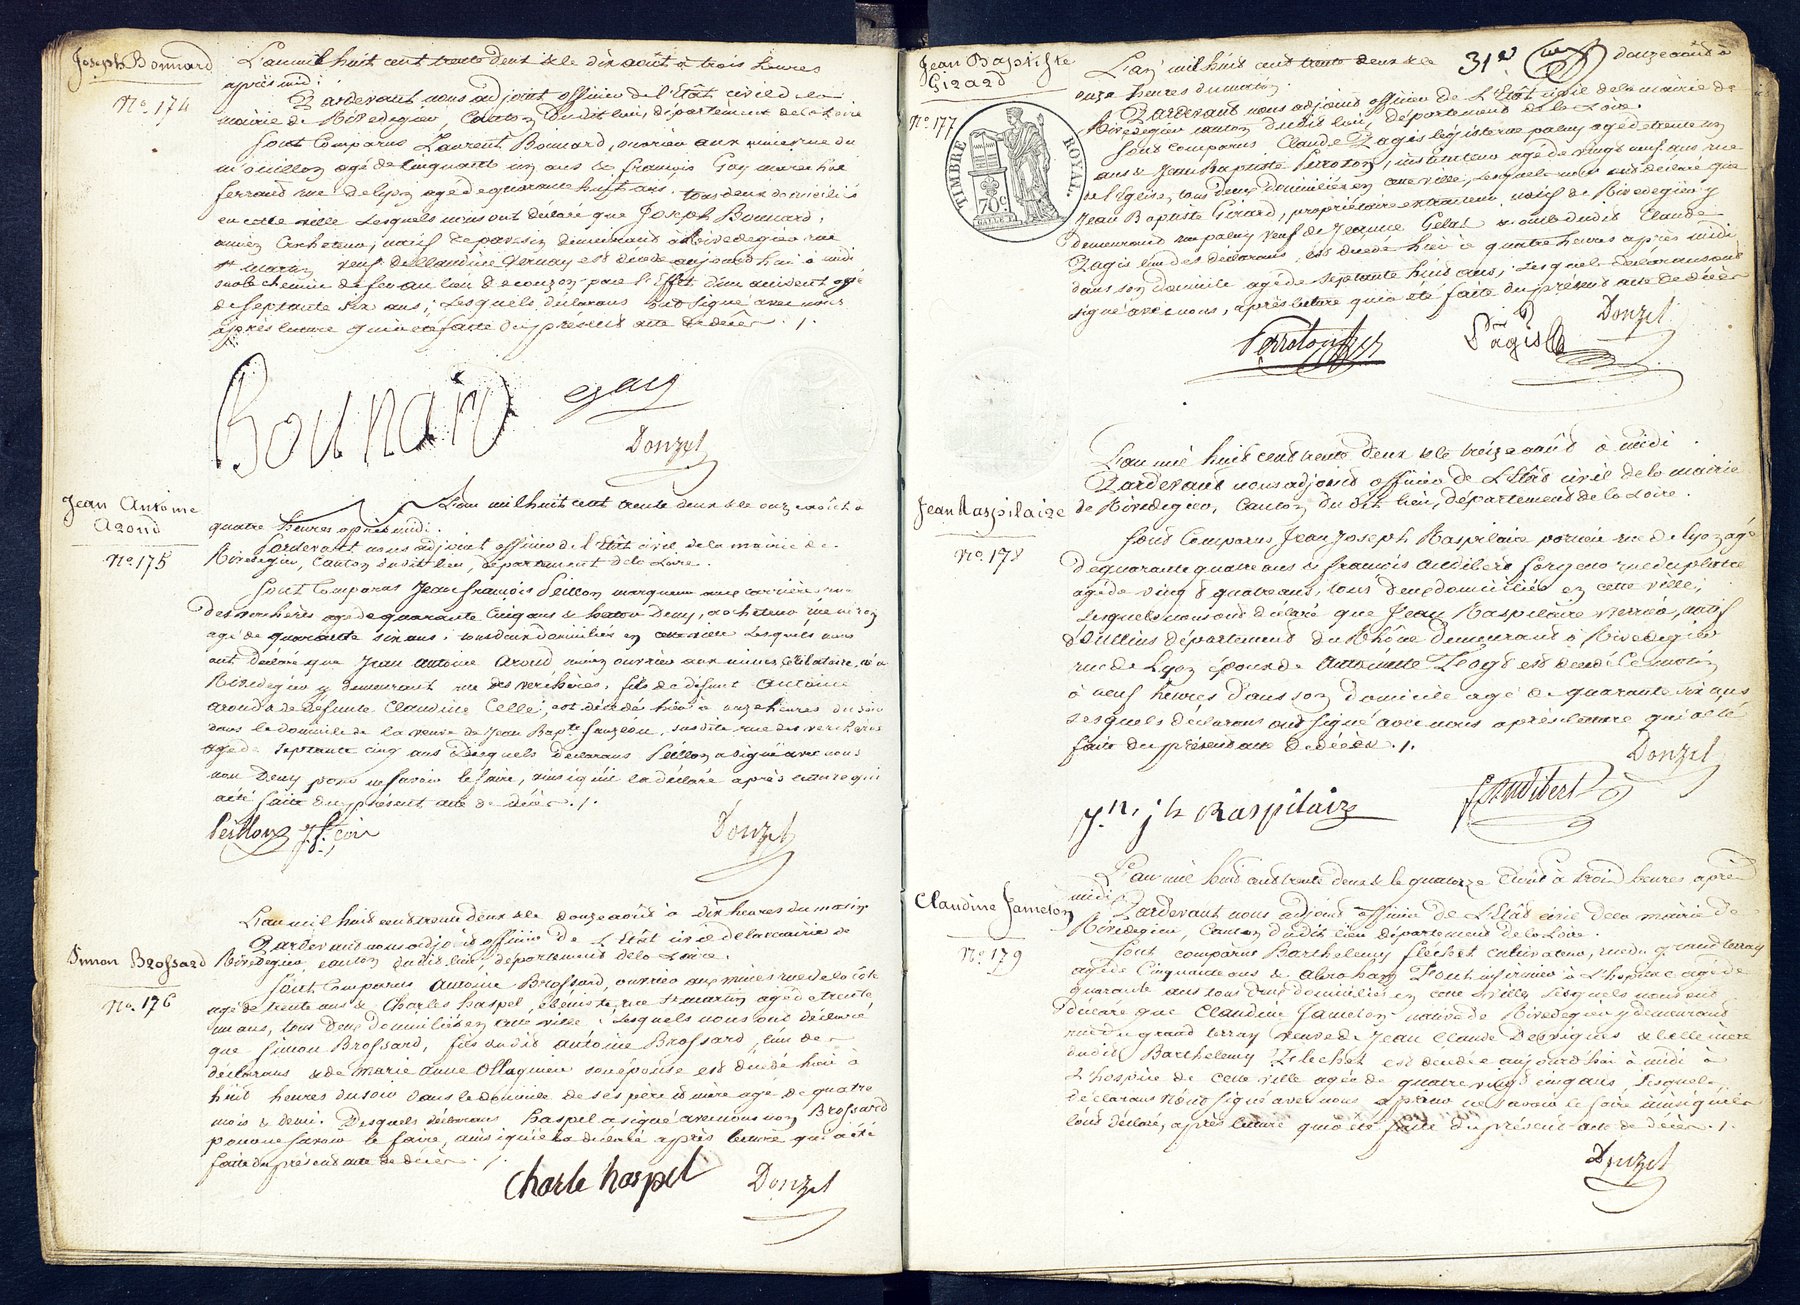 Joseph Bonnard
No. 174
L'an mil huit cent trente deux & le dix août à trois heures
après midi
Pardevant nous adjoint officier de l'Etat civil de la
mairie de Rivedegier, Canton dudit lieu, département de la Loire
sont Comparus Laurent Bonnard, ouvrier aux mines rue du
mouillon agé de Cinquante un ans & françois Gay marechal
ferrand rue de lyon agé de quarante huit ans. tous deux domiciliés
en cette ville Lesquels nous ont déclaré que Joseph Bonnard,
ancien Acheteur, natif de demeurant à Rivedegier rue
st martin veuf de Claudine Vernay est décédé aujourd'hui à midi
sur le chemin de fer au lieu de couzon par l'Effet d'un accident agé
de septante six ans; Lesquels déclarans ont signé avec nous
après lecture qui a été faite du présent acte de décès. /.
Bounard
gay
Donzel
Jean Antoine
Aroud
No. 175
L'an mil huit cent trente deux & le onze août à
quatre heures après midi.
Pardevant nous adjoint officier de l'Etat civil de la mairie de
Rivedegier, Canton dudit lieu, département de la Loire.
sont Comparus Jean françois Peillon marqueur aux carrières rue
des verchères agé de quarante Cinq ans & Deny, acheteur rue
agé de quarante six ans; tous deux domiciliés en cette ville Lesquels nous
ont déclaré que Jean antoine Aroud ancien ouvrier aux mines, Célibataire, né à
Rivedegier y demeurant rue des verchères, fils de défunt Antoine
aroud & de défunte Claudine Celle, est décédé hier à onze heures du soir
dans le domicile de la veuve de Jean Bapte fauzeon, susdite rue des verchères
agé de septante cinq ans Desquels déclarans Peillon a signé avec nous
non Deny pour ne savoir le faire, ainsi qu'il l'a déclaré après lecture qui
a été faite du présent acte de décès. /.
Peillon
Donzel
Simon Brossard
No. 176
L'an mil huit cent trente deux & le douze août à dix heures du matin
Pardevant nous adjoint officier de L'Etat civil de la mairie de
Rivedegier, canton dudit lieu, département de la Loire.
sont Comparus Antoine Brossard, ouvrier aux mines rue de la
agé de trente ans & Charles haspel, ébéniste, rue st martin agé de trente
un ans, tous deux domiciliés en cette ville; Lesquels nous ont déclaré
que Simon Brossard, fils dudit antoine Brossard, l'un des
déclarans & de marie anne Ollagnier son épouse est décédé hier à
huit heures du soir dans le domicile de ses père & mère agé de quatre
mois & demi. Desquels déclarans haspel a signé avec nous non Brossard
pour ne savoir le faire, ainsi qu'il l'a déclaré après lecture qui a été
faite du présent acte de décès. /.
Charle haspel
Donzel
Jean Baptiste
Girard
No. 177
TIMBRE ROYAL.
70c
31e
L'an mil huit cent trente deux & le douze août à
onze heures du matin.
Pardevant nous adjoint officier de L'Etat civil de la mairie de
Rivedegier canton dudit lieu, département de la Loire.
sont comparus Claude Pagis légisterue paluy agé de trente un
ans & Jean Baptiste Perroton, instituteur agé de vingt neuf ans rue
de l'Eglise, tous deux domiciliés en cette ville, Lesquels nous ont déclaré que
Jean Baptiste Girard, propriétaire natif de Rivedegier y
demeurant rue paluy veuf de Jeanne Gelas & oncle dudit Claude
Pagis l'un des déclarans, est décédé hier à quatre heures après midi
dans son domicile agé de septante huit ans; Lesquels déclarans ont
signé avec nous, après lecture qui a été faite du présent acte de décès
Perroton
Pagis
Donzel
Jean Raspilaire
No. 178
L'an mil huit cent trente deux & le treize août à midi.
Pardevant nous adjoint officier de L'Etat civil de la mairie
de Rivedegier, Canton dudit lieu, département de la Loire.
sont Comparus Jean Joseph Raspilaire verrier rue de lyon agé
de quarante quatre ans & francois audibert forgeur rue du plâtre
agé de vingt quatre ans, tous deux domiciliés en cette ville;
Lesquels nous ont déclaré que Jean Raspilaire verrier, natif
d'Oullins département du Rhône demeurant à Rivedegier
rue de Lyon époux de antoinette est décédé Ce matin
à neuf heures dans son domicile agé de quarante six ans
Lesquels déclarans ont signé avec nous après lecture qui a été
faite du présent acte de décès. /.
Donzel
Jn. jh Raspilaire
f. audibert
Claudine Jameton
No. 179
L'an mil huit cent trente deux & le quatorze Août à trois heures après
midi
Pardevant nous adjoint officier de L'Etat civil de la mairie de
Rivedegier, Canton dudit lieu département de la Loire.
Sont comparus Barthelemy fléchet cultivateur, rue du grand terray
agé de Cinquante ans & abraham infirmier à L'hospice agé de
quarante ans tous deux domiciliés en cette ville, Lesquels nous ont
déclaré que Claudine Jameton native de Rivedegier y demeurant
rue du grand terray veuve de Jean Claude Desvignes & belle mère
dudit Barthelemy flechet est décédée aujourd'hui à midi à
L'hospice de cette ville agée de quatre vingt cinq ans, Lesquels
déclarans n'ont signé avec nous pour ne savoir le faire ainsi qu'ils
l'ont déclaré, après lecture qui a été faite du présent acte de décès. /.
Donzel